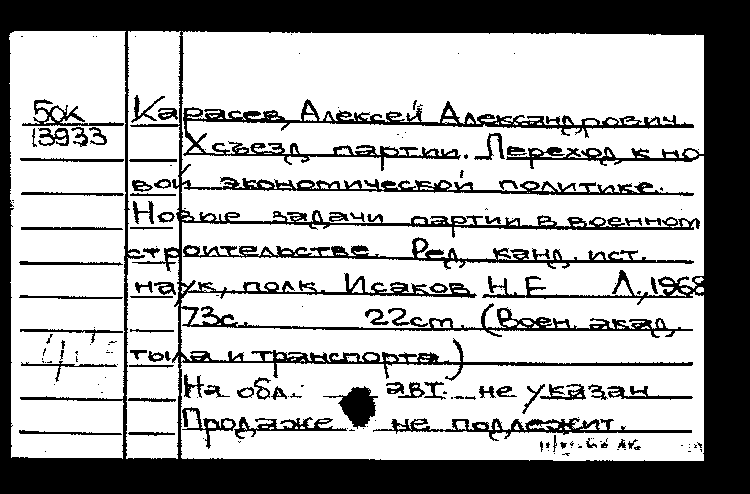 БОК Карасев, Алексей Александрович.
13933 X съезд партии. Переход к но
вой экономической политике.
Новые задачи партии в военном
строительстве. Ред. канд. ист.
наук, полк. Исаков Н.Е Л., 1968
73с. 22cm. (Воен. акад.
тыла и транспорта)
На обл.: авт. не указан
Продаже не подлежит.